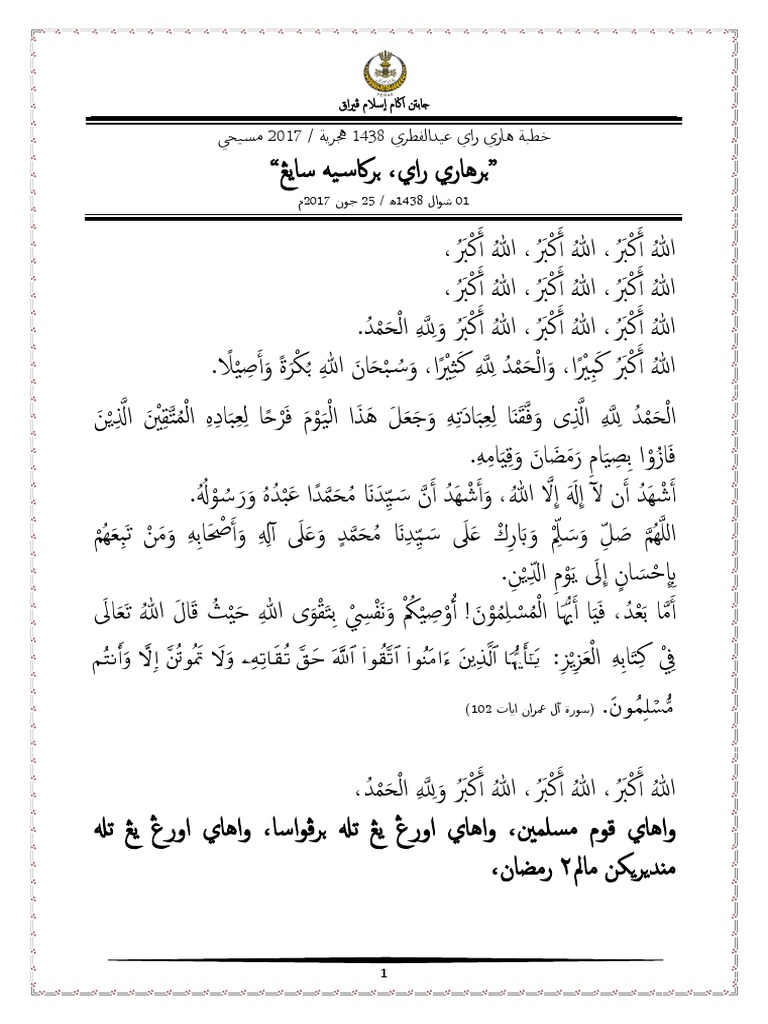 PERAK
جابتن اݢام إسلام ڤيراق
خطبة هاري راي عيدالفطري 1438 هجرية / 2017 مسيحي
”برهاري راي، بركاسيه سايڠ“
01 شوال 1438هـ / 25 جون 2017م
اللهُ أَكْبَرُ، اللهُ أَكْبَرُ، اللهُ أَكْبَرُ،
اللهُ أَكْبَرُ، اللهُ أَكْبَرُ، اللهُ أَكْبَرُ،
اللهُ أَكْبَرُ، اللهُ أَكْبَرُ، اللهُ أَكْبَرُ وَلِلَّهِ الْحَمْدُ.
اللهُ أَكْبَرُ كَبِيْرًا، وَالْحَمْدُ لِلَّهِ كَثِيْرًا، وَسُبْحَانَ اللهِ بُكْرَةً وَأَصِيْلًا.
الْحَمْدُ لِلَّهِ الَّذِى وَفَّقَنَا لِعِبَادَتِهِ وَجَعَلَ هَذَا الْيَوْمَ فَرْحًا لِعِبَادِهِ الْمُتَّقِيْنَ الَّذِيْنَ
فَازُوْا بِصِيَامِ رَمَضَانَ وَقِيَامِهِ.
أَشْهَدُ أَن لآ إِلَهَ إِلَّا اللهُ، وَأَشْهَدُ أَنَّ سَيِّدَنَا مُحَمَّدًا عَبْدُهُ وَرَسُوْلُهُ.
اللَّهُمَّ صَلِّ وَسَلِّمْ وَبَارِكْ عَلَى سَيِّدِنَا مُحَمَّدٍ وَعَلَى آلِهِ وَأَصْحَابِهِ وَمَنْ تَبِعَهُمْ
بِإِحْسَانٍ إِلَى يَوْمِ الدِّيْنِ.
أَمَّا بَعْدُ، فَيَا أَيُّهَا الْمُسْلِمُوْنَ! أُوْصِيْكُمْ وَنَفْسِيْ بِتَقْوَى اللهِ حَيْثُ قَالَ اللهُ تَعَالَى
فِيْ كِتَابِهِ الْعَزِيْزِ: يَـٰٓأَيُّهَا ٱلَّذِينَ ءَامَنُوا۟ ٱتَّقُوا۟ ٱللَّهَ حَقَّ تُقَاتِهِۦ وَلَا تَمُوتُنَّ إِلَّا وَأَنتُم
مُّسْلِمُونَ. (سورة آل عمران ايات 102)
اللهُ أَكْبَرُ، اللهُ أَكْبَرُ، اللهُ أَكْبَرُ وَلِلَّهِ الْحَمْدُ،
واهاي قوم مسلمين، واهاي اورڠ يڠ تله برڤواسا، واهاي اورڠ يڠ تله
منديريكن مالم٢ رمضان،
1